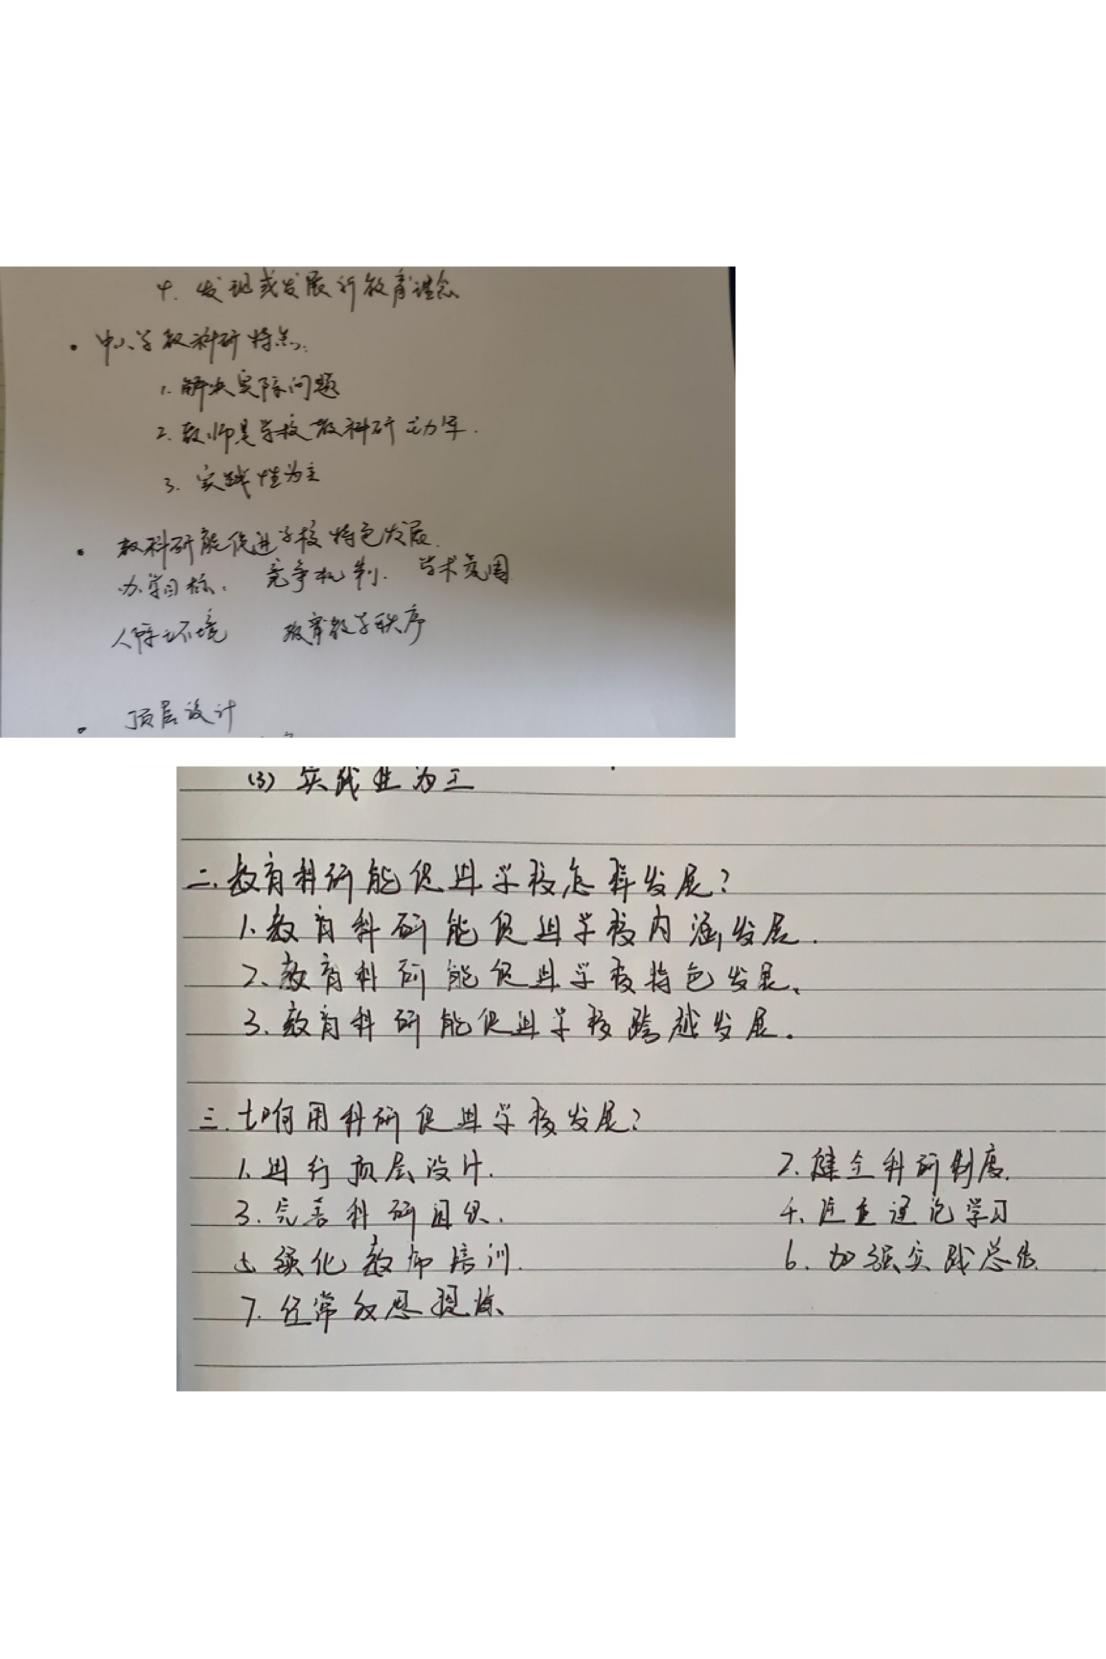 4. 发现或发展新教育理念
• 中小学教科研特点:
1. 解决实际问题
2. 教师是学校教科研主力军.
3. 实践性为主
• 教科研能促进学校特色发展.
办学目标. 竞争机制. 学术氛围
人际环境 教育教学秩序
• 顶层设计
(3) 实践性为主
二. 教育科研能促进学校怎样发展?
1. 教育科研能促进学校内涵发展.
2. 教育科研能促进学校特色发展.
3. 教育科研能促进学校跨越发展.
三. 如何用科研促进学校发展?
1. 进行顶层设计. 2. 健全科研制度.
3. 完善科研组织. 4. 注重理论学习
5 强化教师培训. 6. 加强实践总结.
7. 经常反思提炼.